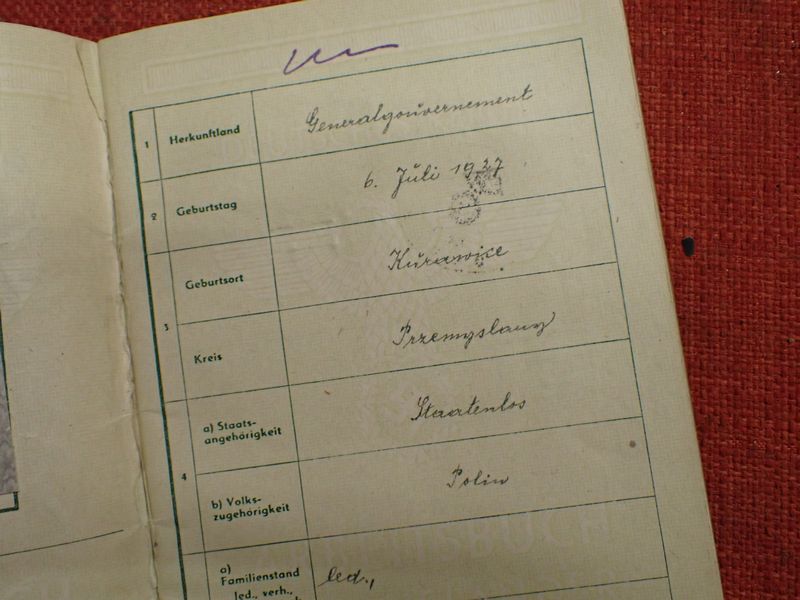 1 Herkunftland Generalgouvernement
2 Geburtstag 6. Juli 1927
Geburtsort Kurowice
3
Kreis Przemyslany
a) Staats-
angehörigkeit Staatenlos
4
b) Volks-
zugehörigkeit Polin
a)
Familienstand
led., verh., led.,
ARBEITSBUCH